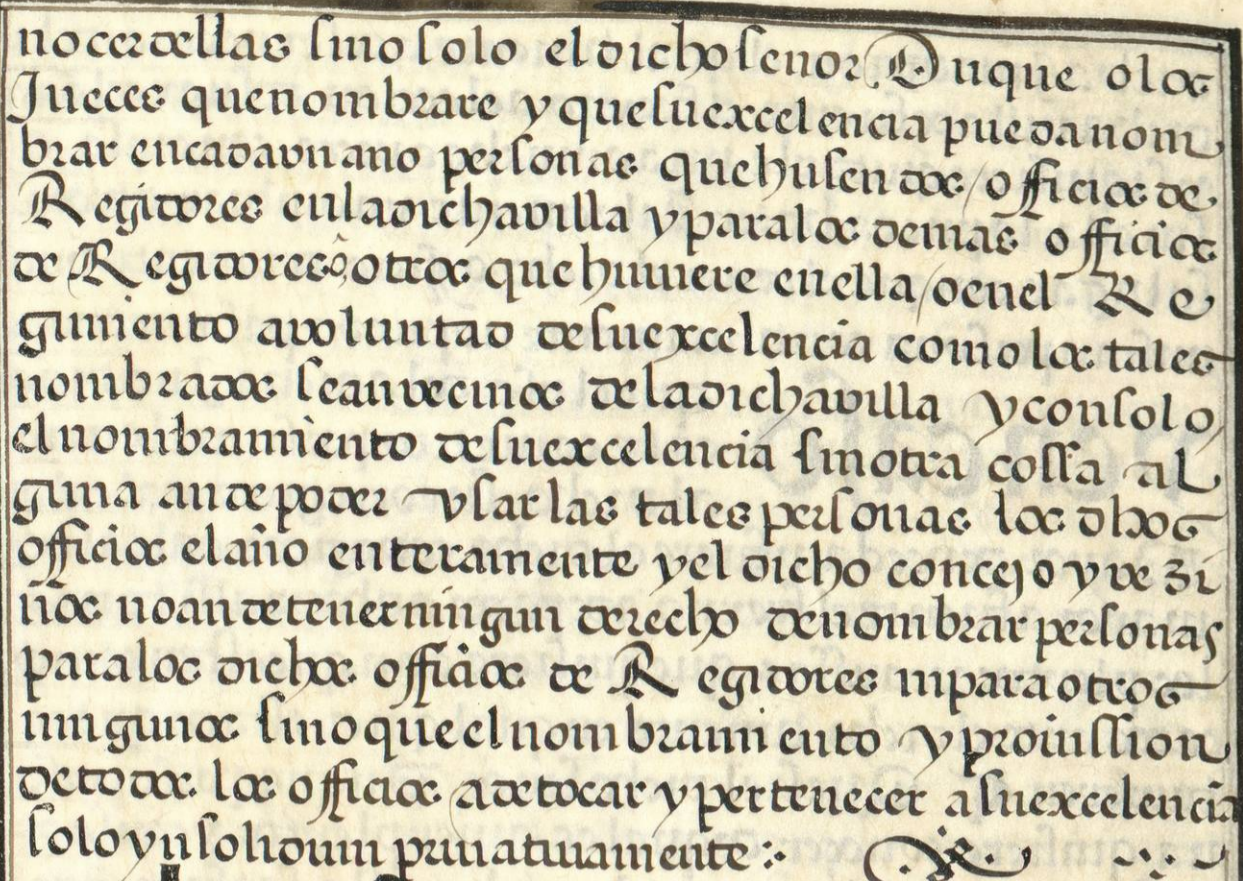 nocer dellas sino solo el dicho señor Duque o los
Jueces que nombrare y que su excelencia pueda nom
brar en cada vn ano personas que husen dos / officios de
Regidores en la dicha villa y para los demas officios
de Regidores o otros que huuiere en ella / o en el Re
gimiento a voluntad de su excelencia como los tales
nombrados sean vecinos de la dicha villa y con solo
el nombramiento de su excelencia sin otra cossa al
guna an de poder vsar las tales personas los dhos
officios el año enteramente y el dicho concejo y vezi
nos no an de tener ningun derecho de nombrar personas
para los dichos officios de Regidores ni para otros
ningunos sino que el nombramiento y prouission
de todos los officios a de tocar y pertenecer a su excelencia
solo yn solidum priuatiuamente